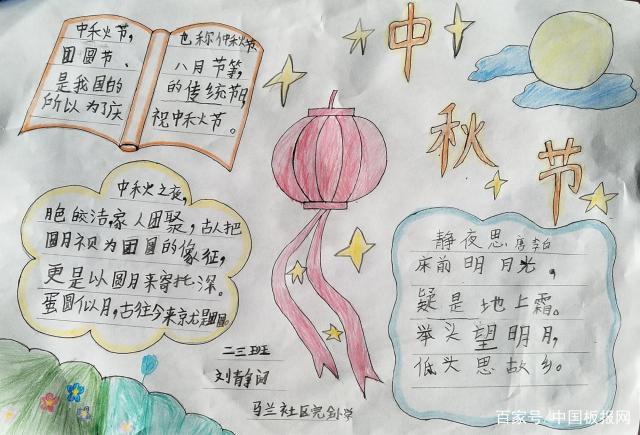 中秋节
中秋火节,
团圆节、
是我国的
所以为了庆
也称仲秋节
八月节等,
的传统节日,
祝中秋火节。
中秋火之夜,
皎洁,家人团聚,古人把
圆月视为团圆的像征,
更是以圆月来寄托深。
蛋圆似月,古往今来
静夜思 唐李白
床前明月光,
疑是地上霜。
举头望明月,
低头思故乡。
二三班
刘静
马兰社区完全小学
百家号 中国板报网